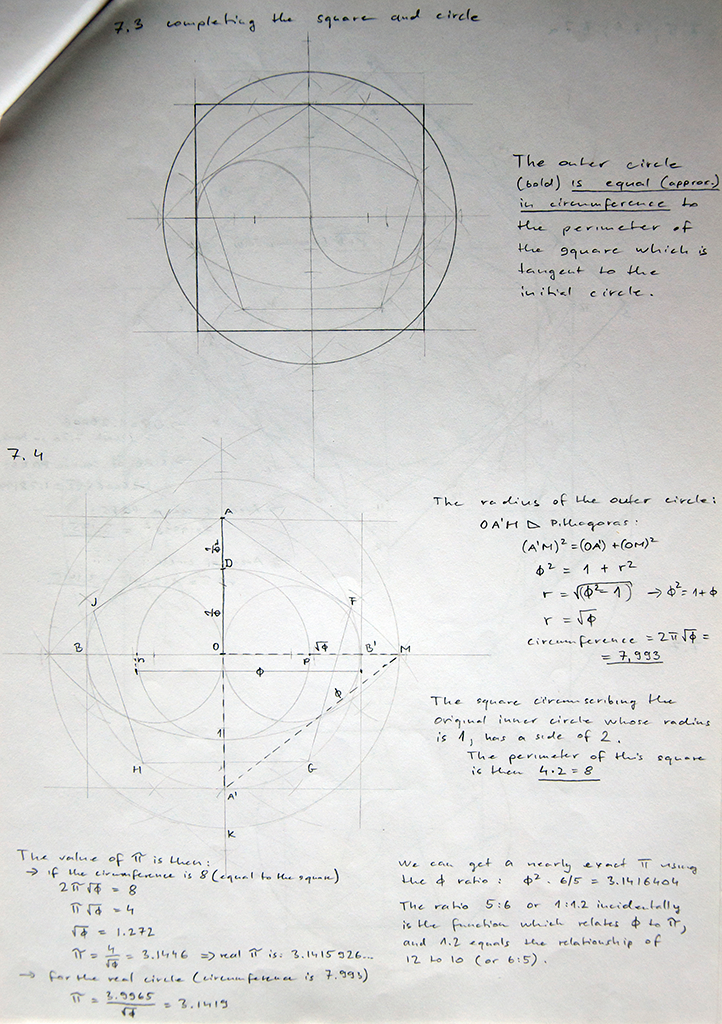 7.3 completing the square and circle
The outer circle
(bold) is equal (approx.)
in circumference to
the perimeter of
the square which is
tangent to the
initial circle.
7.4
A
1/φ²
D
1/φ
J
F
B
O
P
√φ
B'
M
φ
φ
1
H
G
A'
K
The radius of the outer circle:
OA'M ⊿ Pithagoras:
(A'M)² = (OA')+(OM)²
φ² = 1 + r²
r = √(φ²-1) → φ²=1+φ
r = √φ
circumference = 2π√φ =
= 7,993
The square circumscribing the
original inner circle whose radius
is 1, has a side of 2.
The perimeter of this square
is then 4·2=8
The value of π is then:
→ if the circumference is 8 (equal to the square)
2π√φ = 8
π√φ = 4
√φ = 1.272
π = 4/√φ = 3.1446 ⇒ real π is: 3.1415926...
→ for the real circle (circumference is 7.993)
π = 3.9965/√φ = 3.1419
We can get a nearly exact π using
the φ ratio: φ² · 6/5 = 3.1416404
The ratio 5:6 or 1:1.2 incidentally
is the function which relates φ to π,
and 1.2 equals the relationship of
12 to 10 (or 6:5).